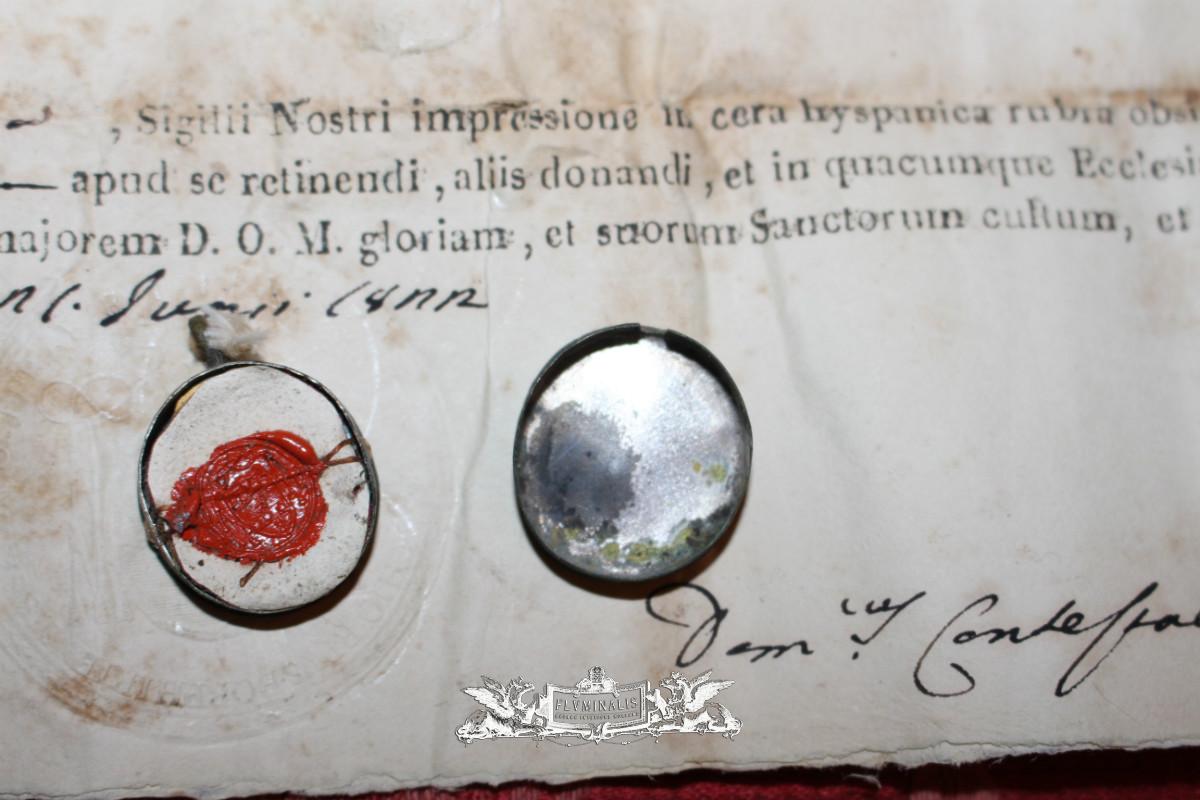 , Sigilii Nostri impressione in cera hyspanica rubra obsi
apud se retinendi, aliis donandi, et in quacumque Ecclesi
majorem D. O. M. gloriam, et suorum Sanctorum cultum, et
Junii 1822
FLVMINALIS